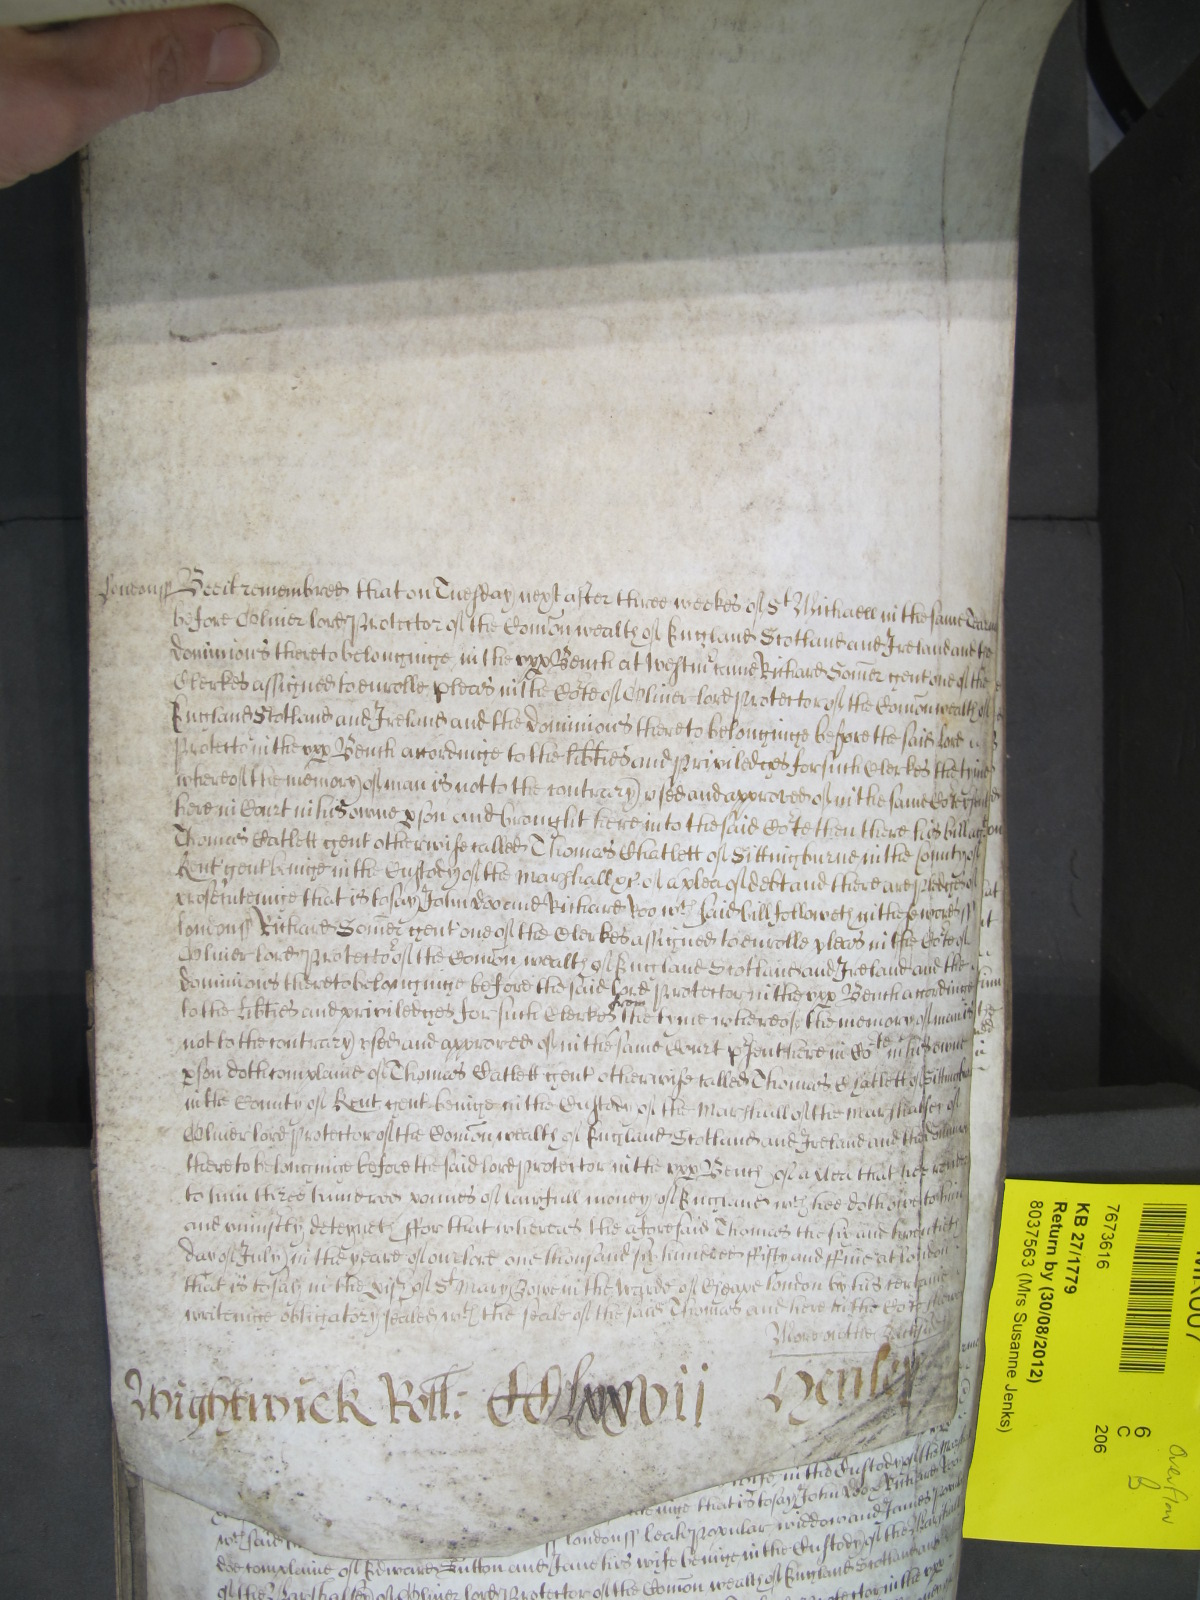 London ss Bee it remembred that on Tuesday next after three weekes of St Michaell in the same Tearme
before Oliver lord Protector of the Comon wealth of England Scotland and Ireland and the
dominions thereto belonginge in the upp Bench at Westmr came Richard Somer gent one of the
Clerkes assigned to enrolle pleas in the Cote of Oliver lord Protector of the Comon wealth of
England Scotland and Ireland and the dominions thereto belonginge before the said lord
Protector in the upp Bench accordinge to the libties and priviledges for such Clerkes the tyme
whereof the memory of man is not to the contrary used and approved of in the same Cote
here in Court in his owne pson and brought here into the said Cote then there his bill against
Thomas Catlett gent otherwise called Thomas Chatlett of Sittingburne in the County of
Kent gent beinge in the Custody of the Marshall &c of a plea of debt and there are pledges of
prosecutinge that is to say John Doo and Richard Roo wch said bill followeth in these words ss
London ss Richard Somer gent one of the Clerkes assigned to enrolle pleas in the Cote of
Oliver lord Protector of the Comon wealth of England Scotland and Ireland and the
dominions thereto belonginge before the said lord Protector in the upp Bench accordinge
to the libties and priviledges for such Clerkes from the tyme whereof the memory of man is
not to the contrary used and approved of in the same Court psent here in Cote in his owne
pson doth complaine of Thomas Catlett gent otherwise called Thomas Chatlett of Sittingburne
in the County of Kent gent beinge in the Custody of the Marshall of the Marshalsey of
Oliver lord Protector of the Comon wealth of England Scotland and Ireland and the
thereto belonginge before the said lord Protector in the upp Bench of a plea that hee render
to him three hundred pounds of lawfull money of England wch hee doth owe to him
and uniustly deteyneth ffor that whereas the aforesaid Thomas the six and twentieth
day of July in the yeare of our lord one thousand six hundred ffifty and ffive at london
that is to say in the pish of St Mary Bowe in the Warde of Cheape london by his certaine
writeinge obligatory sealed with the seale of the said Thomas and here in the Cote
More on the Backside
Wightwick Roll: CClxxvii Henley
wife in the Custody of the
that is to say John Doo Richard Roo
wch said
london ss Leah widdow and James
doe complaine of Edward Sutton and Jane his wife beinge in the Custody of the Marshall
of the Marshalsey of Oliver lord Protector of the Comon wealth of England Scotland and
7673616
KB 27/1779
Return by (30/08/2012)
8037563 (Mrs Susanne Jenks)
6
C
206
Overflow
B